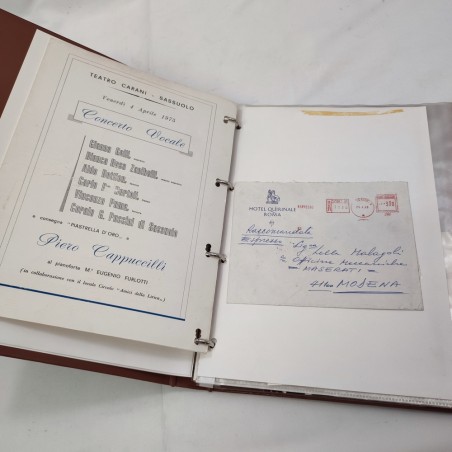 TEATRO CARANI - SASSUOLO
Venerdì 4 Aprile 1975
Concerto Vocale
Gianna Galli
Bianca Rosa Zanibelli
Aldo Bottion
Carlo
Vincenzo
Corale G. Puccini di Sassuolo
e consegna "PIASTRELLA D'ORO" a
Piero Cappuccilli
al pianoforte M° EUGENIO FURLOTTI
(in collaborazione con il locale Circolo "Amici della Lirica")
HOTEL QUIRINALE
ROMA
ESPRESSO
Raccomandata
Espresso
Sig.
Lella Malagoli
c/o Officine Meccaniche
- MASERATI -
41100 MODENA